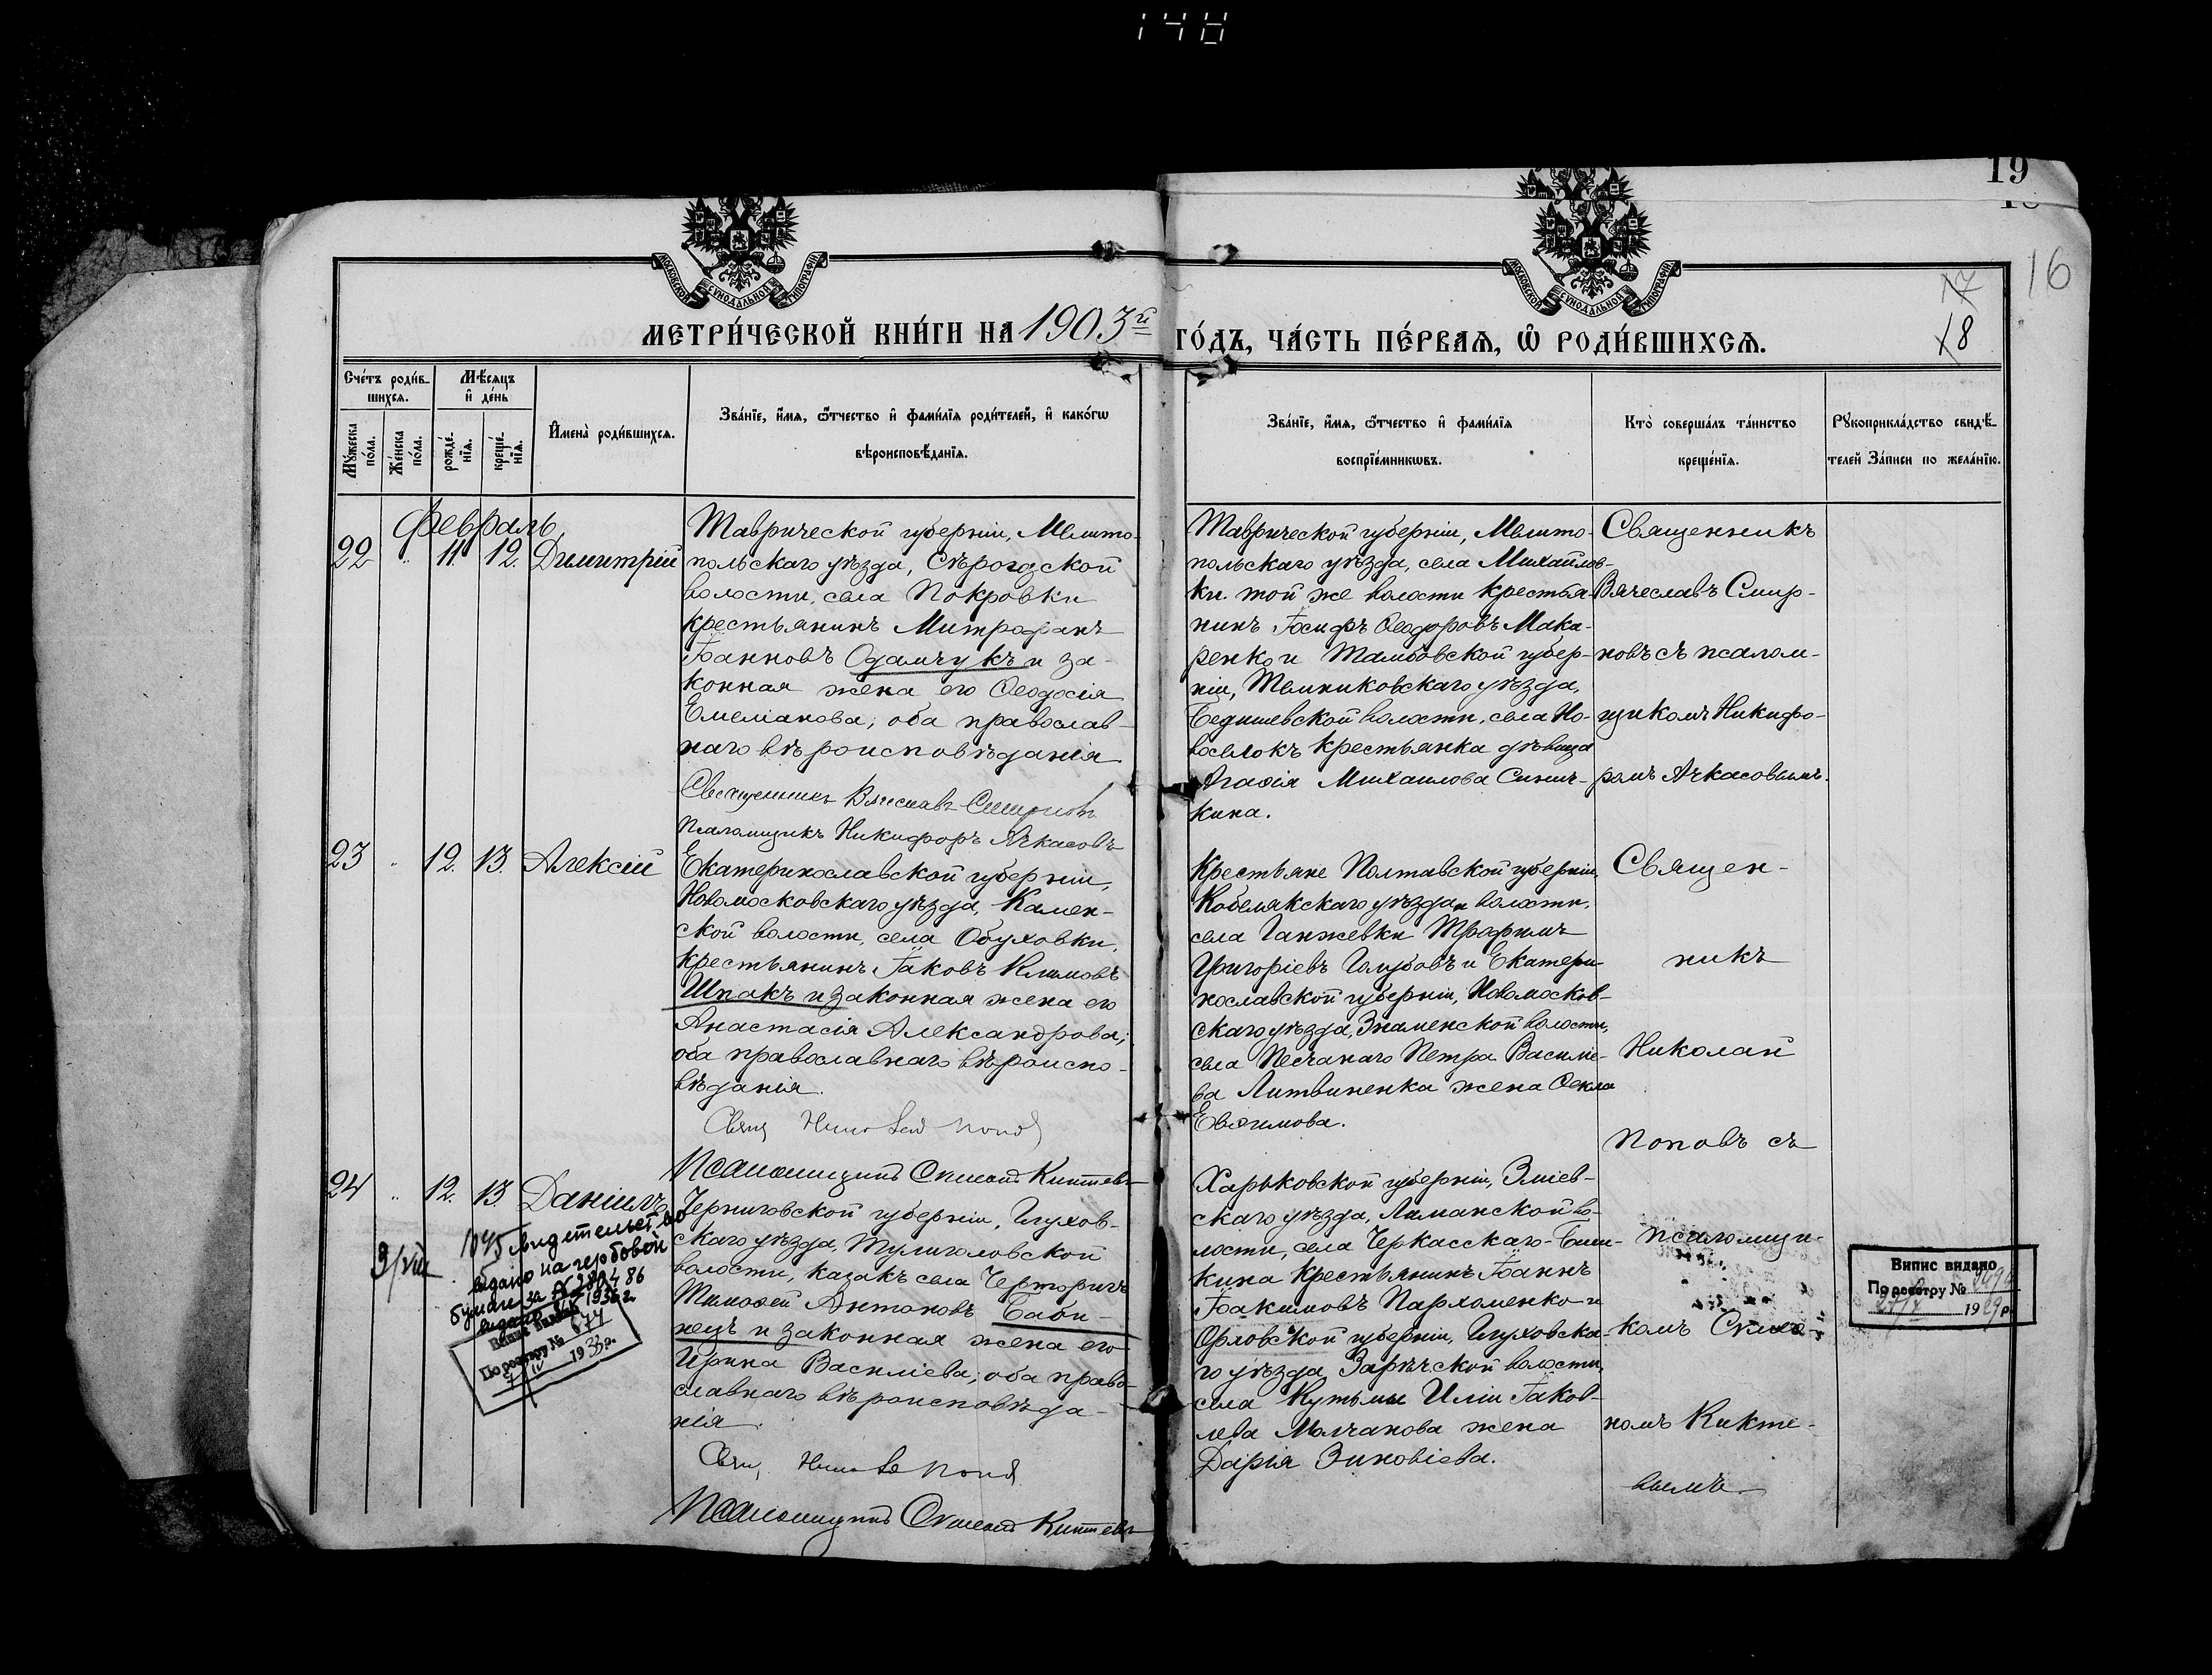 148
19
16
17
18
МОСКОВСКОЙ СѴНОДАЛЬНОЙ ТИПОГРАФІИ
МОСКОВСКОЙ СѴНОДАЛЬНОЙ ТИПОГРАФІИ
МЕТРИ́ЧЕСКОЙ КНИ́ГИ НА 1903й
ГО́ДЪ, ЧА́СТЬ ПЕ́РВАѦ, Ѽ РОДИ́ВШИХСѦ.
Сче́тъ роди́в-
шихсѧ.
Мꙋ́жеска по́ла.
Же́нска по́ла.
Мѣ́сѧцъ
и҆ де́нь
рожде́нїѧ.
креще́нїѧ.
И҆мена̀ роди́вшихсѧ.
Зва́нїе, и҆́мѧ, ѻ҆́тчество и҆ фами́лїѧ роди́телей, и҆ како́гѡ
вѣроисповѣ́данїѧ.
Зва́нїе, и҆́мѧ, ѻ҆́тчество и҆ фами́лїѧ
воспрїе́мникѡвъ.
Кто̀ соверша́лъ та́инство
креще́нїѧ.
Рꙋкоприкла́дство свидѣ́-
телей За́писи по жела́нїю.
Февраль
22 " 11. 12. Димитрій
Таврической губерніи, Мелито-
польскаго уѣзда, Сѣрогозской
волости, села Покровки
крестьянинъ Митрофанъ
Іоанновъ Одамчукъ и за-
конная жена его Ѳеодосія
Емеліанова; оба православ-
наго вѣроисповѣданія
Священникъ Вячеславъ Смирновъ
Псаломщикъ Никифоръ Ачкасовъ
Таврической губерніи, Мелито-
польскаго уѣзда, села Михайлов-
ки той же волости крестья-
нинъ Іосифъ Ѳеодоровъ Мака-
ренко и Тамбовской губер-
ніи, Темниковскаго уѣзда,
Бедишевской волости, села Но-
воселокъ крестьянка дѣвица
Агаѳія Михаилова Синич-
кина.
Священникъ
Вячеславъ Смир-
новъ съ псалом-
щикомъ Никифо-
ромъ Ачкасовымъ.
23 " 12. 13. Алексій
Екатеринославской губерніи,
Новомосковскаго уѣзда, Камен-
ской волости, села Обуховки,
крестьянинъ Іаковъ Климовъ
Шпакъ и законная жена его
Анастасія Александрова;
оба православнаго вѣроиспо-
вѣданія.
Свящ. Николай Поповъ
Псаломщикъ Стефанъ Киктевъ
Крестьяне Полтавской губерніи
Кобелякскаго уѣзда и волости,
села Ганжевки Трофимъ
Григоріевъ Голубовъ и Екатери-
нославской губерніи, Новомосков-
скаго уѣзда, Знаменской волости,
села Песчанаго Петра Василіе-
ва Литвиненка жена Ѳекла
Евѳимова.
Священ-
никъ
Николай
Поповъ съ
псаломщи-
комъ
номъ Кикте-
вымъ
24 " 12. 13. Даніилъ
Черниговской губерніи, Глухов-
скаго уѣзда, Тулиголовской
волости, казакъ села Черторичъ
Тимоѳей Антоновъ Баби-
нецъ и законная жена его
Ирина Василіева; оба право-
славнаго вѣроисповѣда-
нія.
Свящ. Николай Поповъ
Псаломщикъ Стефанъ Киктевъ
Харьковской губерніи, Зміев-
скаго уѣзда, Лиманской во-
лости, села Черкасскаго-Биш-
кина крестьянинъ Іоаннъ
Іоакимовъ Пархоменко и
Орловской губерніи, Глуховска-
го уѣзда, Зарѣчской волости,
села Кутьмы Иліи Іаков-
лева Молчанова жена
Дарія Зиновіева.
3/VIII 1045 свидетельство
видано на гербовой
бумаге за № 280486
Випис видано
По реєстру № 677
7/IV 1933 р.
Випис видано
По реєстру №
27/X 1929 р.